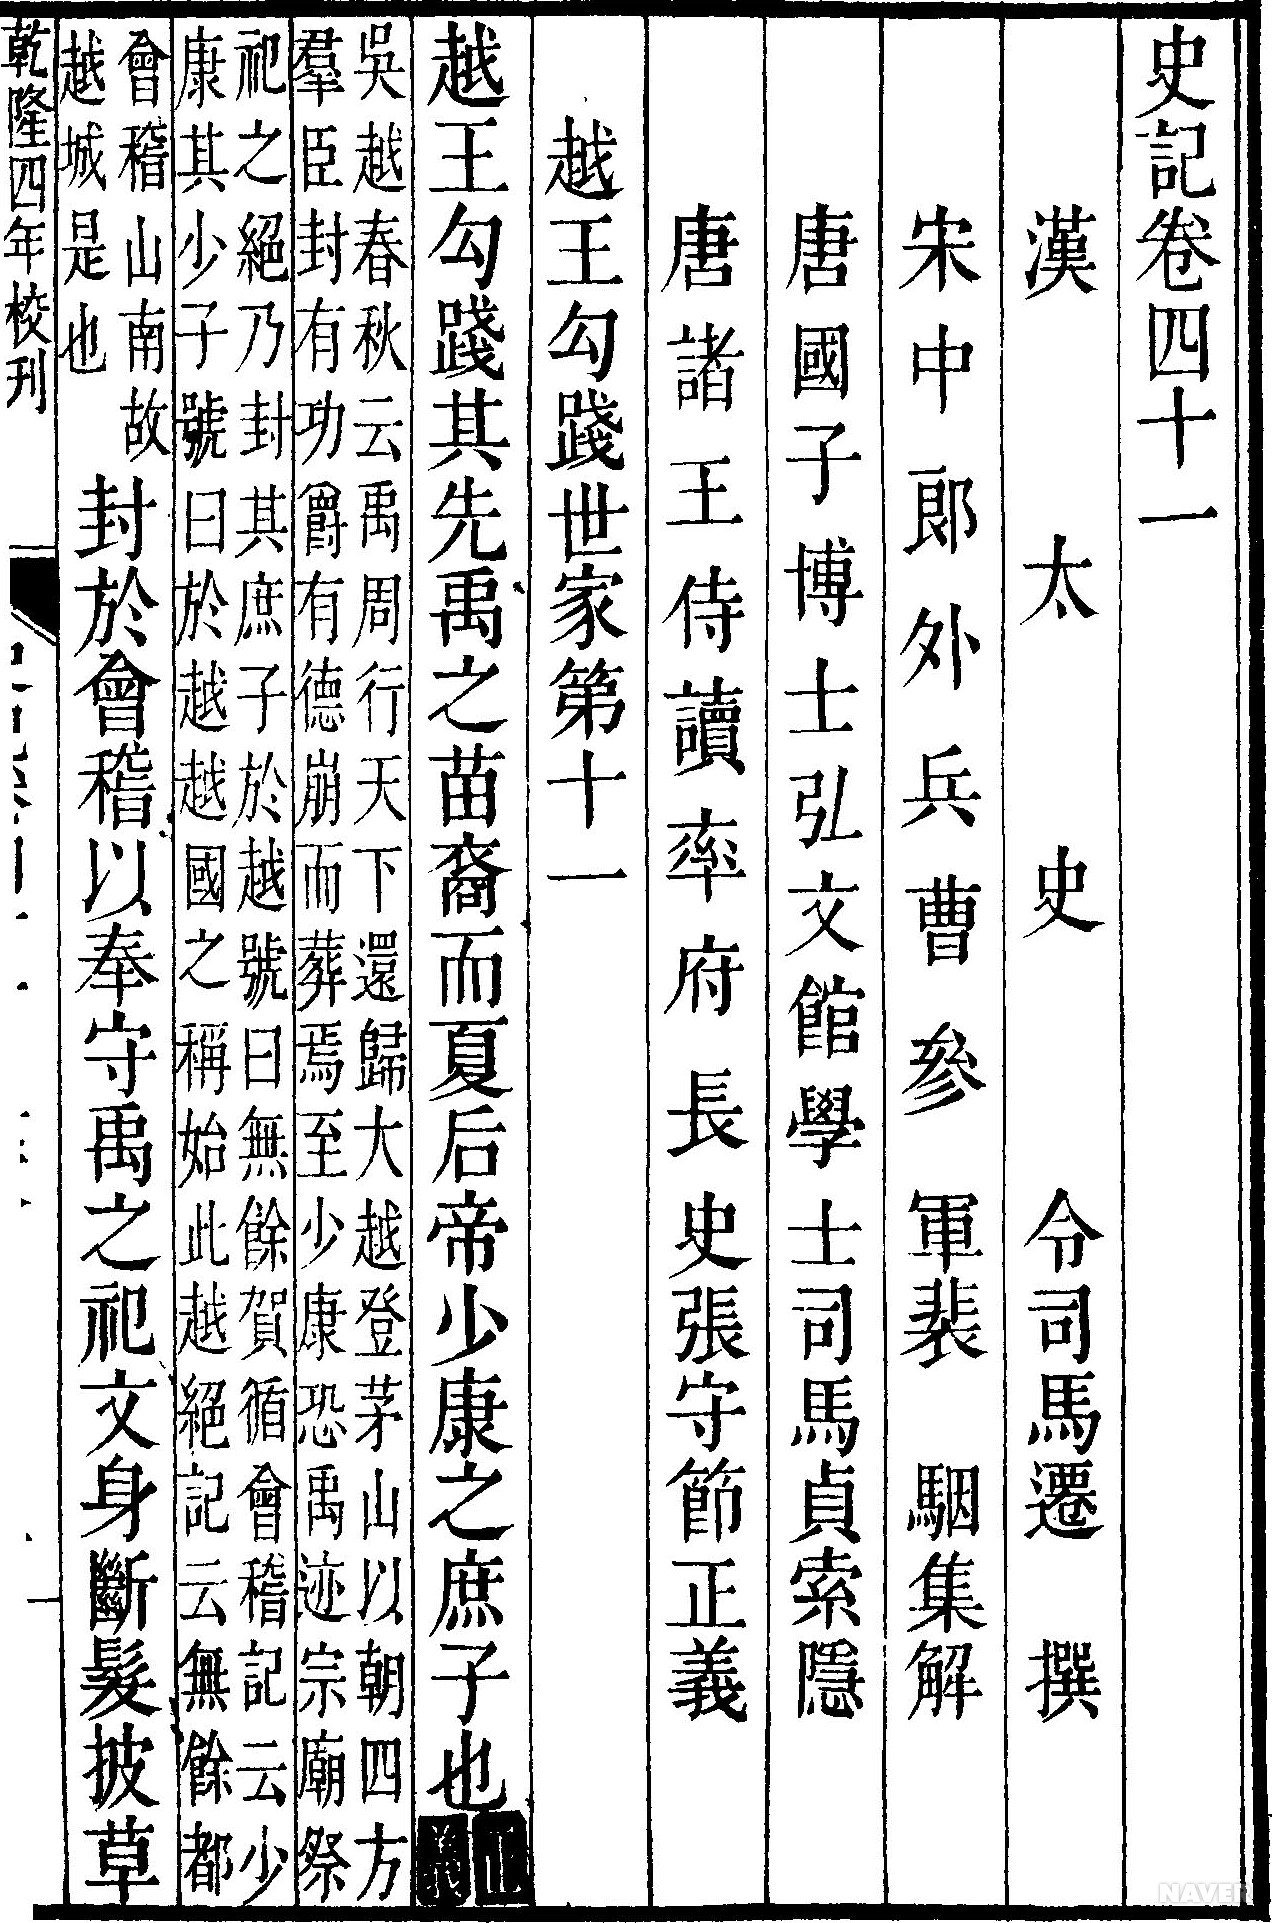 史記卷四十一
漢太史令司馬遷撰
宋中郎外兵曹參軍裴駰集解
唐國子博士弘文館學士司馬貞索隱
唐諸王侍讀率府長史張守節正義
越王勾踐世家第十一
越王勾踐其先禹之苗裔而夏后帝少康之庶子也正義
吳越春秋云禹周行天下還歸大越登茅山以朝四方
羣臣封有功爵有德崩而葬焉至少康恐禹迹宗廟祭
祀之絕乃封其庶子於越號曰無餘賀循會稽記云少
康其少子號曰於越越國之稱始此越絕記云無餘都
會稽山南故
越城是也
封於會稽以奉守禹之祀文身斷髮披草
乾隆四年校刊
NAVER